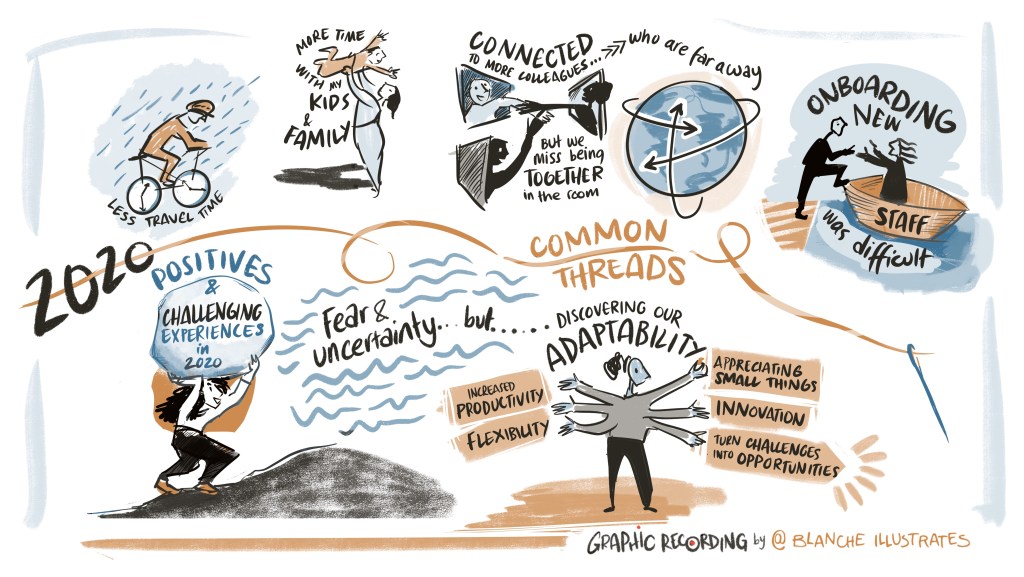 2020
LESS TRAVEL TIME
MORE TIME
WITH MY
KIDS
&
FAMILY
CONNECTED
TO MORE COLLEAGUES...
who are far away
But we
miss being
TOGETHER
in the room
ONBOARDING
NEW
STAFF
was difficult
COMMON
THREADS
POSITIVES
&
CHALLENGING
EXPERIENCES
in
2020
Fear &
uncertainty... but......
DISCOVERING OUR
ADAPTABILITY
INCREASED
PRODUCTIVITY
FLEXIBILITY
APPRECIATING
SMALL THINGS
INNOVATION
TURN CHALLENGES
INTO OPPORTUNITIES
GRAPHIC RECORDING by @ BLANCHE ILLUSTRATES